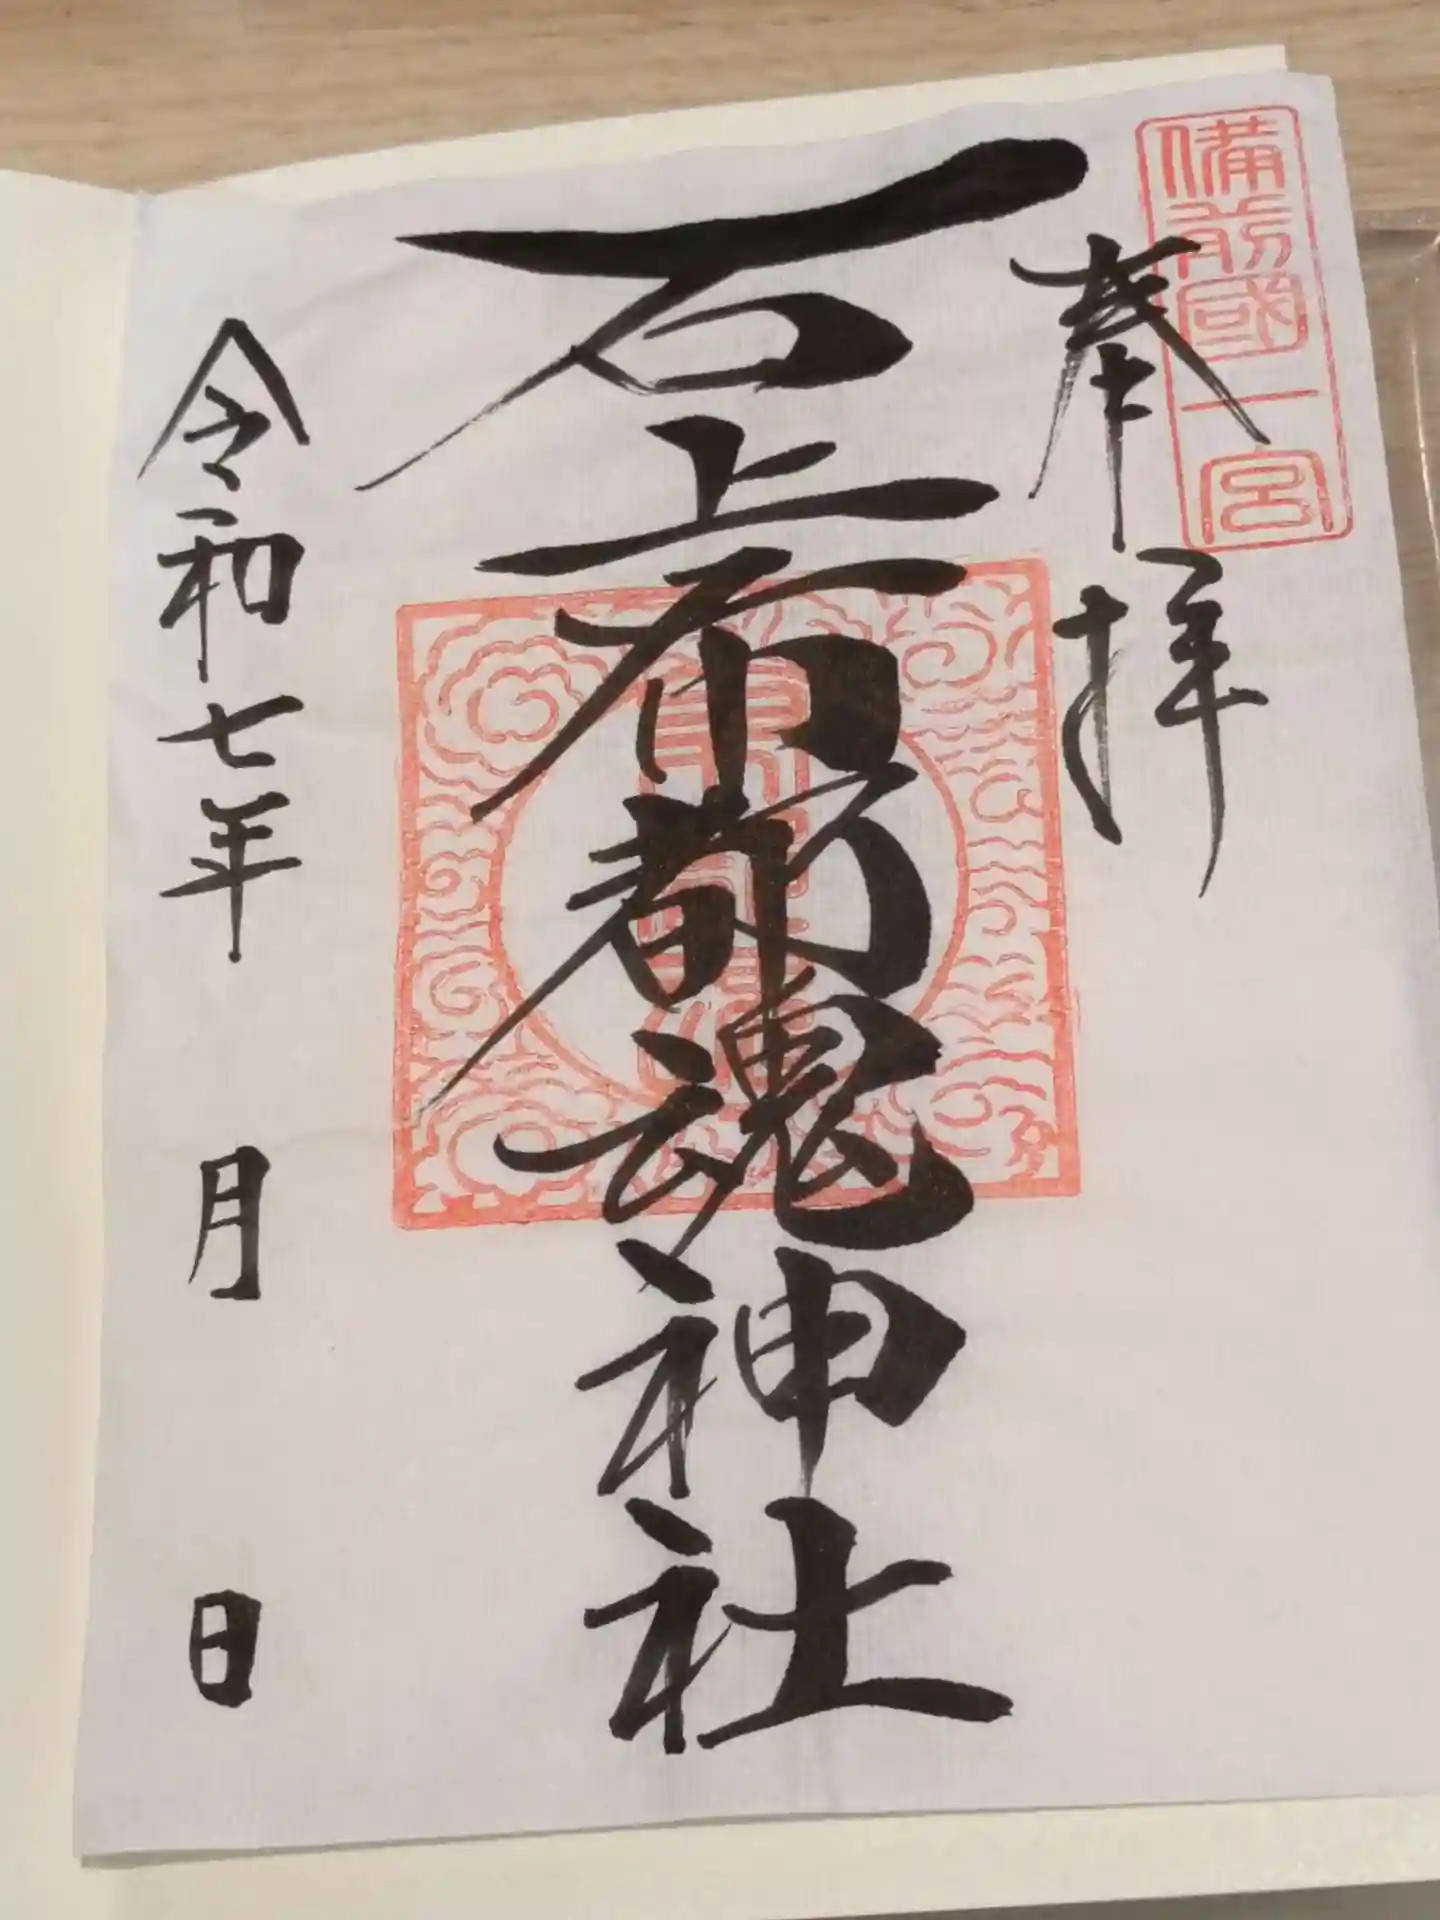 備前國一宮
奉拝
石上布都魂神社
令和七年 月 日